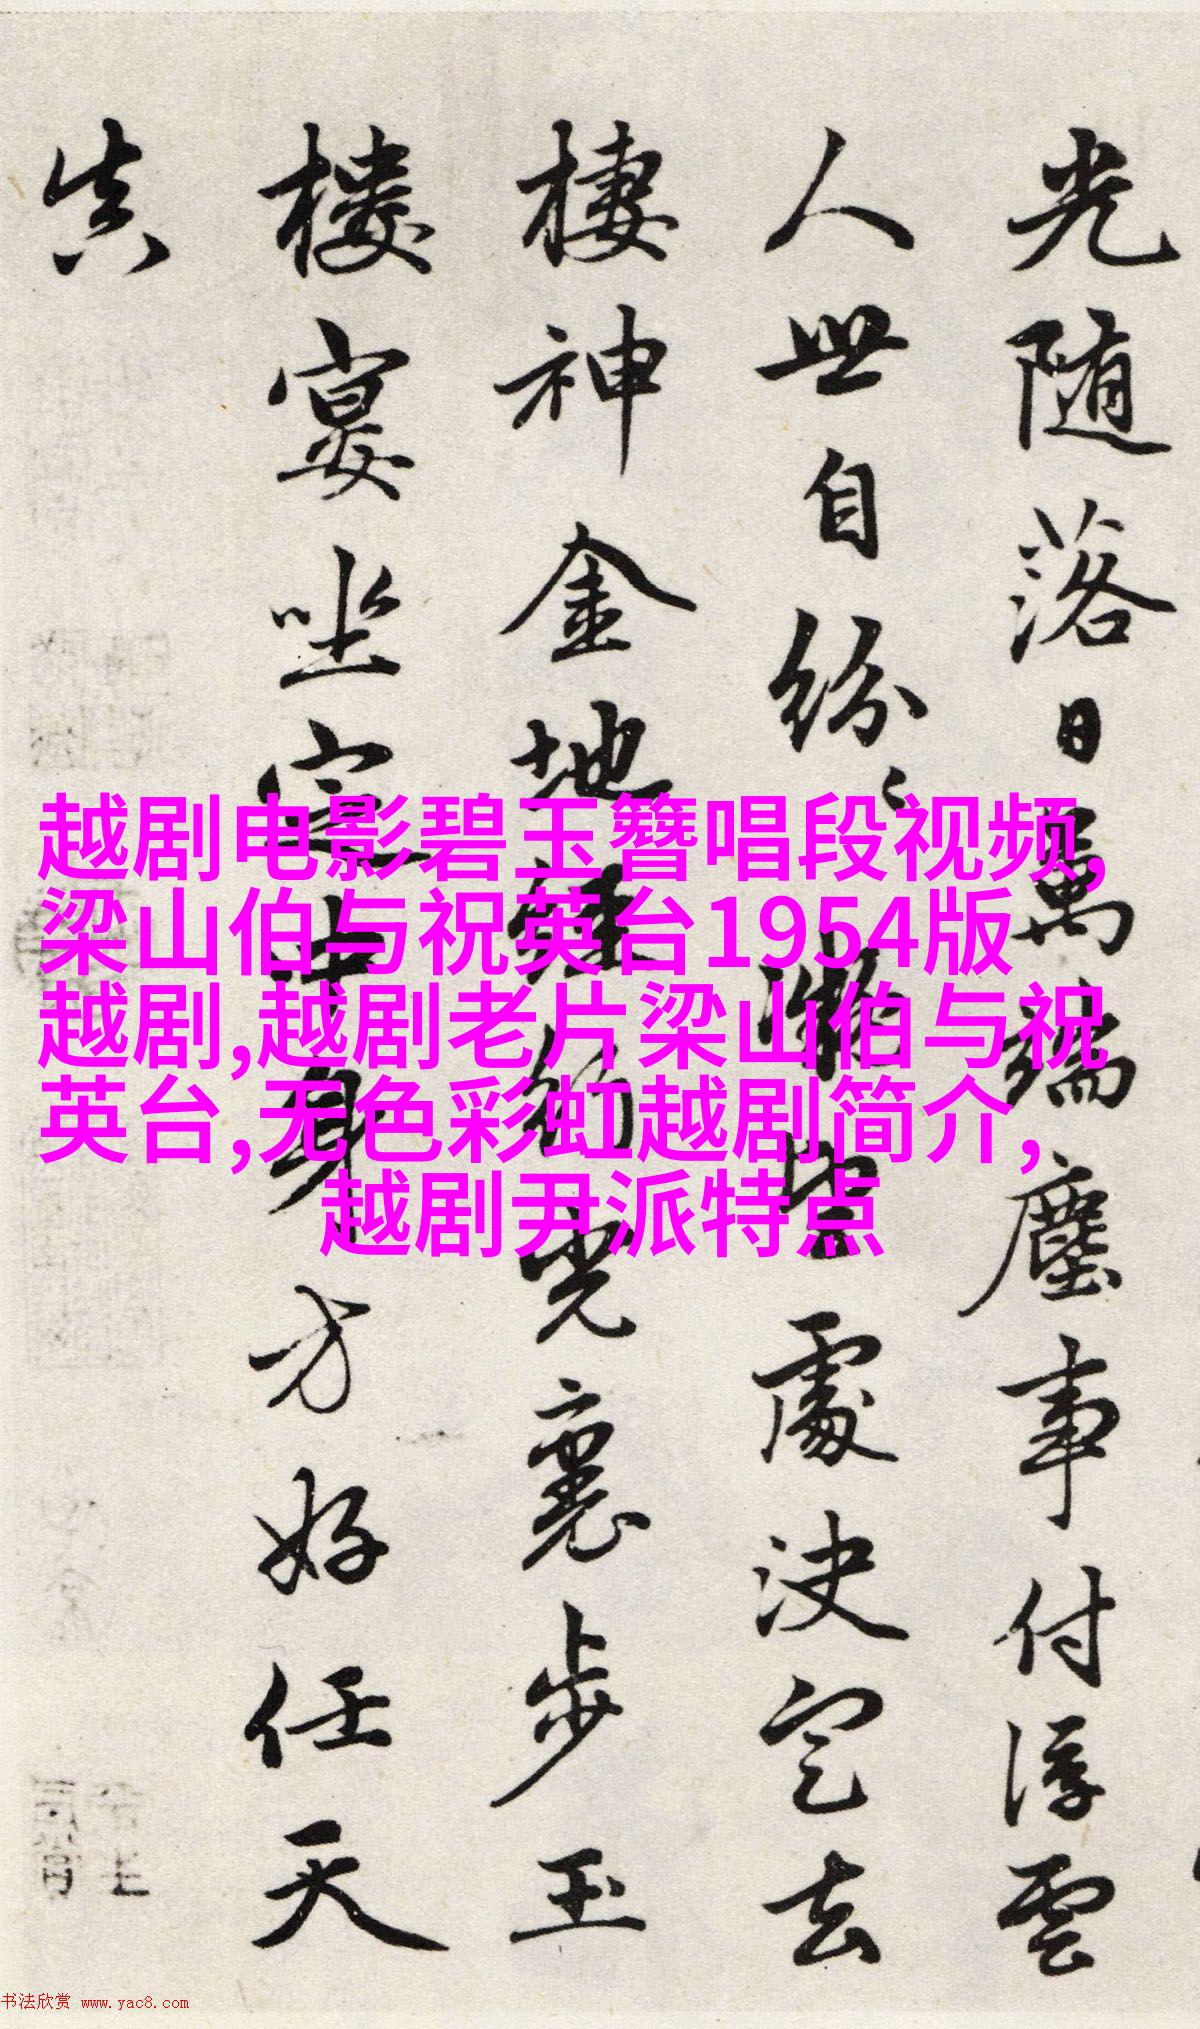 光随落日萬端塵事付浮雲
人世自紛〻處决定去
棲神金地經行光裏步玉
樓宴坐定中身方好任天
真
越剧电影碧玉簪唱段视频,
梁山伯与祝英台1954版
越剧,越剧老片梁山伯与祝
英台,无色彩虹越剧简介,
越剧尹派特点
书法欣赏 www.yac8.com